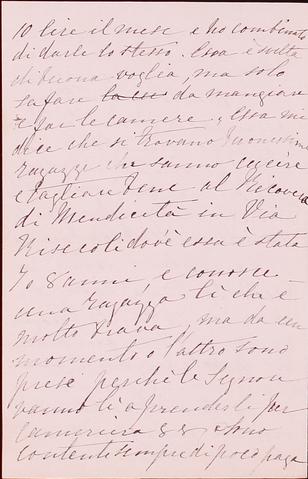 10 lire il mese e ho combinato
di darle lo stesso. Essa è svelta
di buona voglia, ma solo
sa fare da mangiare
e far le camere, essa mi
dice che si trovano buonissime
ragazze che sanno cucire
e tagliare bene al Ricovero
di Mendicità in Via
dov'è essa è stata
anni e conosce
una ragazza lì che è
molto brava, ma da un
momento o l'altro sono
prese perchè le Signore
vanno lì a prendesli per
cameriera && sono
contenti sempre di poco paga